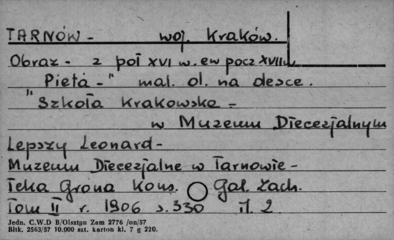 TARNÓW - woj. Kraków.
Obraz - z poł XVI w. ew pocz XVII w.
"Pietà -" mal. ol. na desce.
"Szkoła Krakowska -
w Muzeum Diecezjalnym
Lepszy Leonard -
Muzeum Diecezjalne w Tarnowie -
Teka Grona Kons. Gal. Zach.
Tom II r. 1906 s. 330 il. 2
Jedn. C.W.D B/Olsztyn Zam 2776 /on/57
Bltk. 2563/57 10.000 szt. karton kl. 7 g 220.